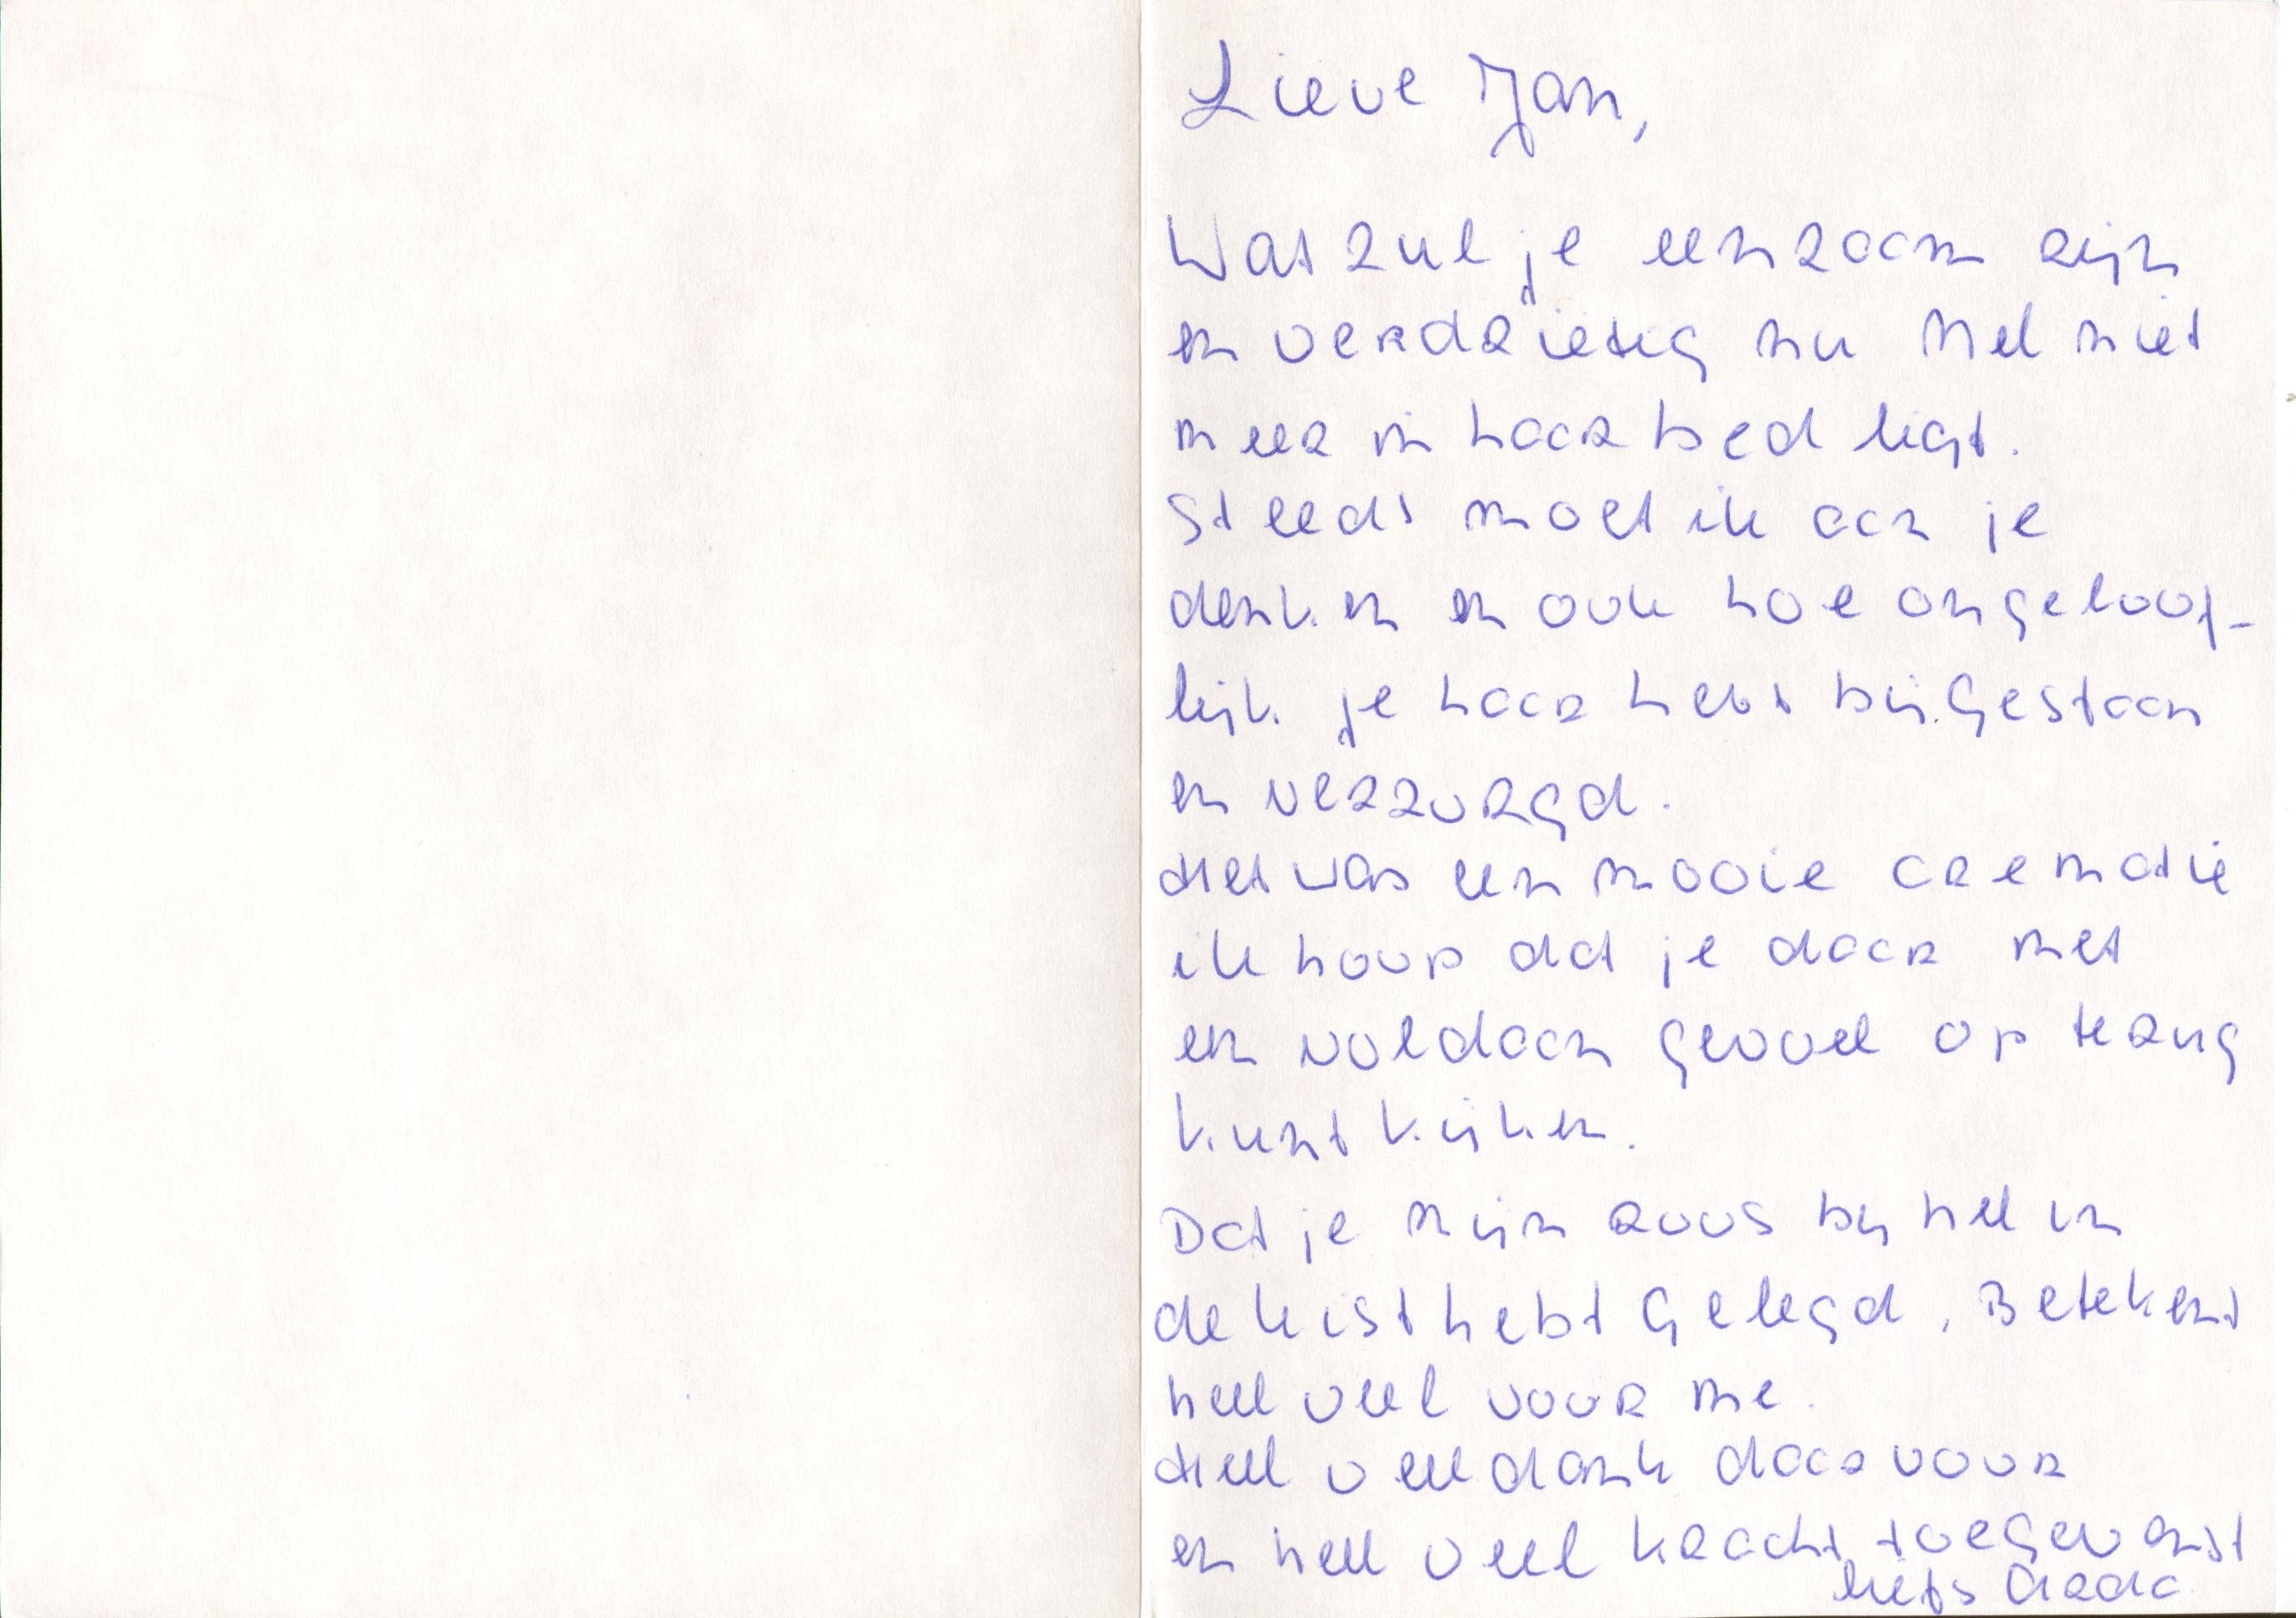 Lieve Jan,
Wat zul je eenzaam zijn
en verdrietig nu Nel niet
meer in haar bed ligt.
Steeds moet ik aan je
denken en ook hoe ongeloof-
lijk je haar hebt bijgestaan
en verzorgd.
Het was een mooie crematie
ik hoop dat je daar met
een voldaan gevoel op terug
kunt kijken.
Dat je mijn roos bij Nel in
de kist hebt gelegd, Betekent
heel veel voor me.
Heel veel dank daarvoor
en heel veel kracht toegewenst
liefs